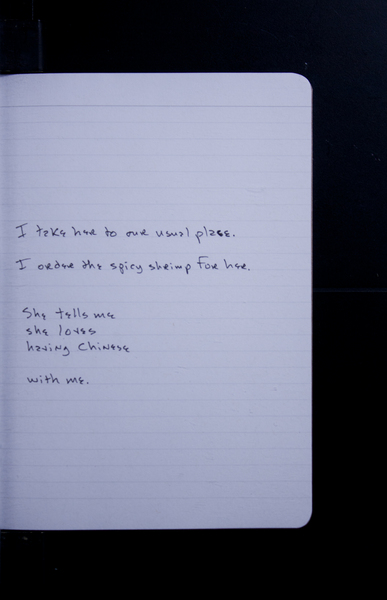 I take her to our usual place.
I order the spicy shrimp for her.
She tells me
she loves
having Chinese
with me.